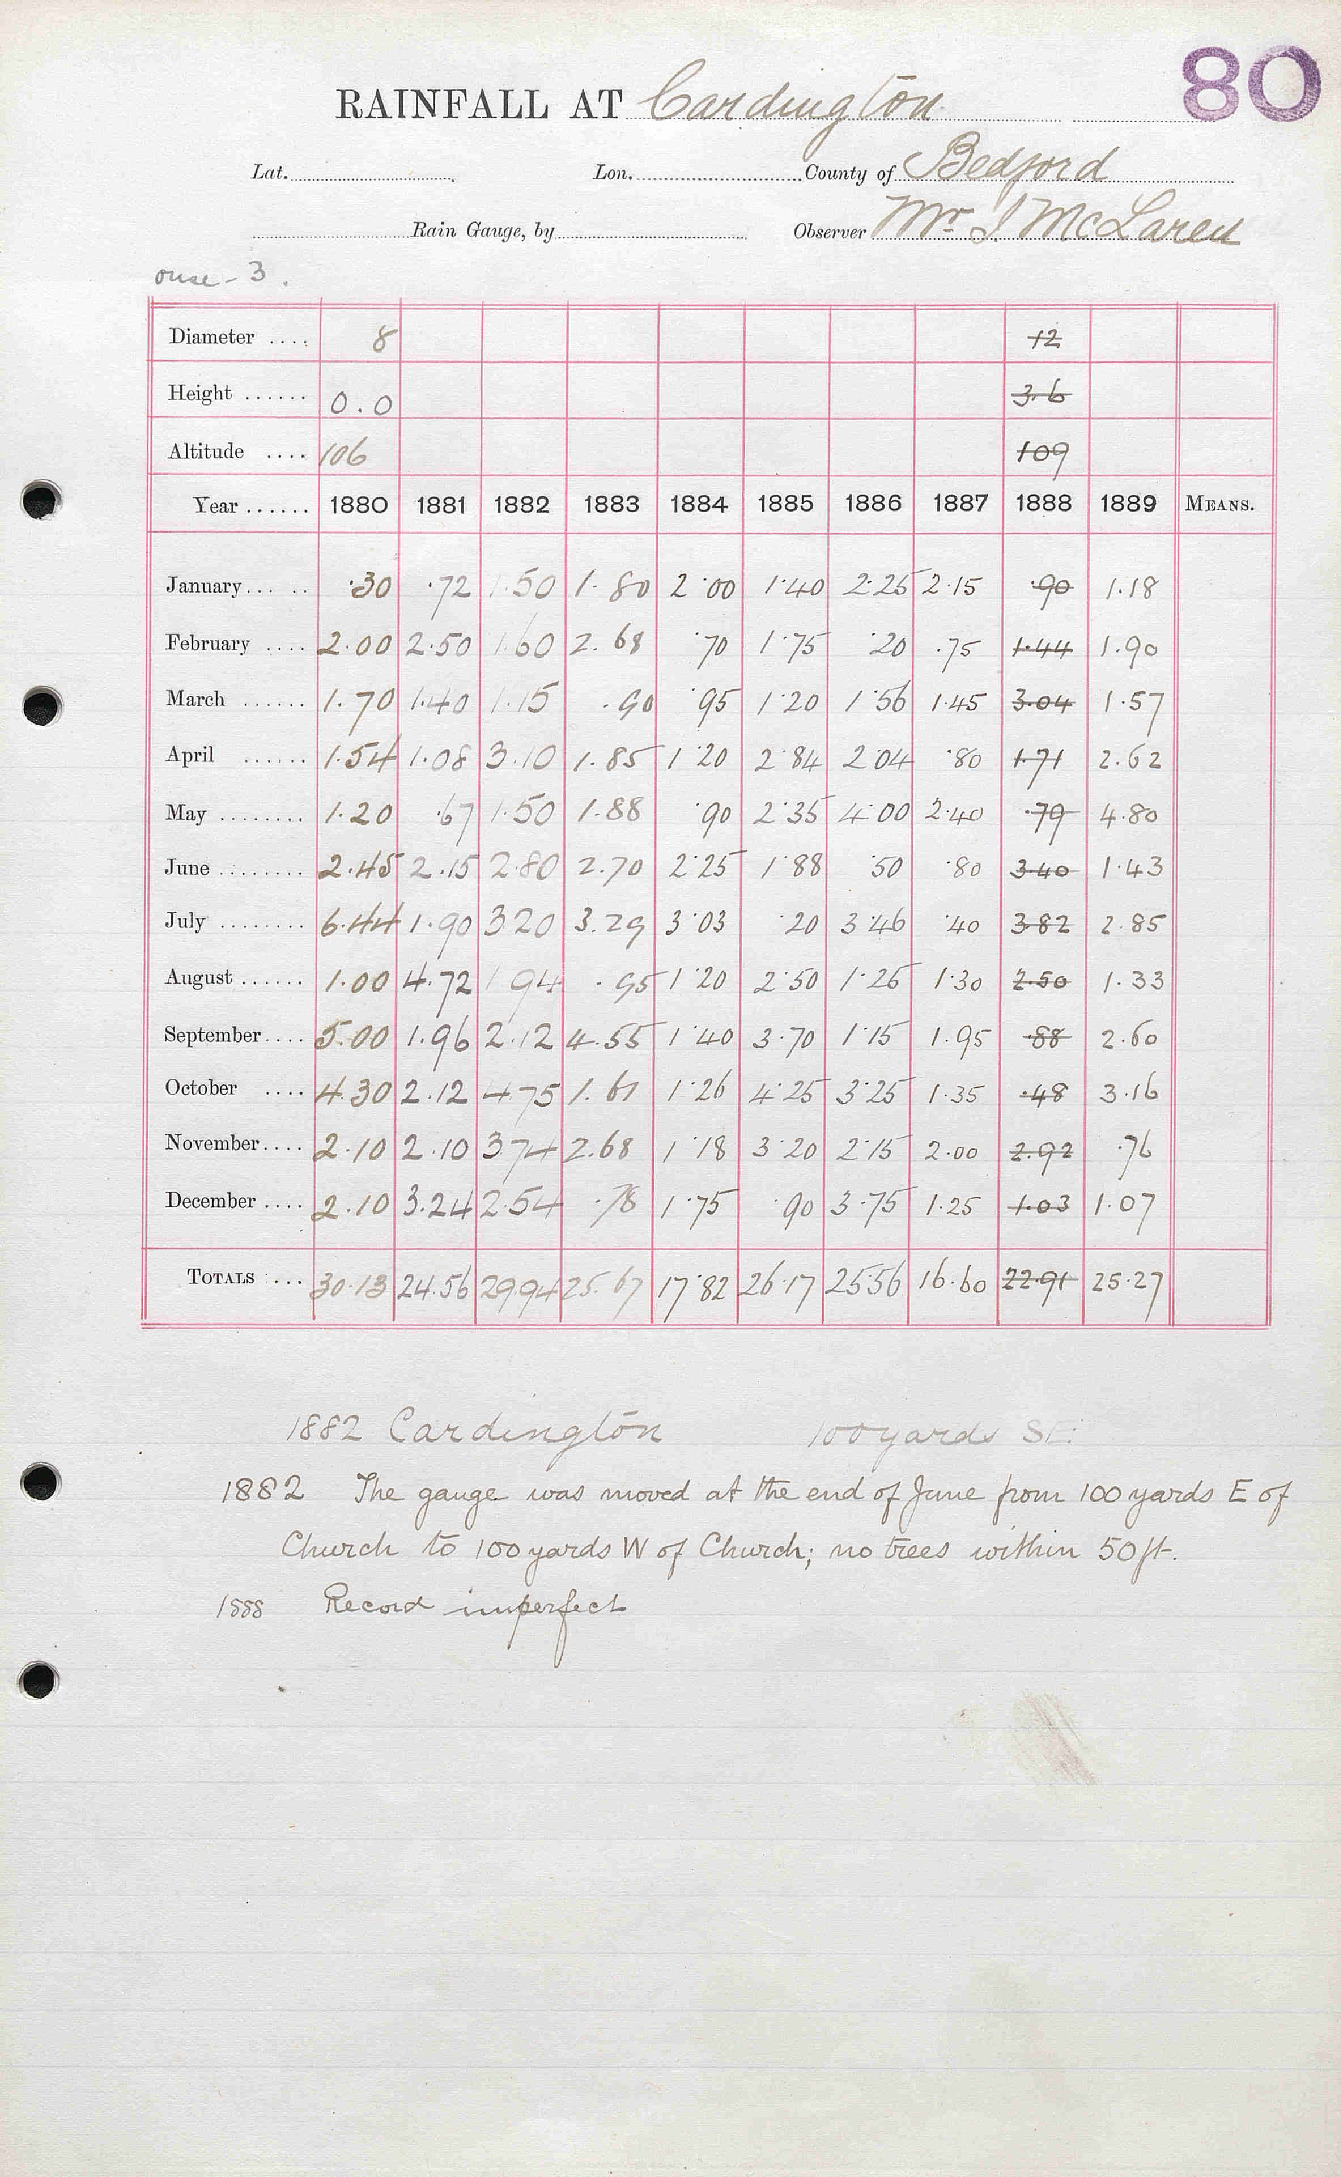 80
RAINFALL AT Cardington
Lat. Lon. County of Bedford
Rain Gauge, by Observer Mr. J McLaren
ouse - 3.
Diameter .... 8 12
Height ...... 0.0 3.6
Altitude .... 106 109
Year ...... 1880 1881 1882 1883 1884 1885 1886 1887 1888 1889 MEANS.
January ... .. .30 .72 1.50 1.80 2.00 1.40 2.25 2.15 .90 1.18
February .... 2.00 2.50 1.60 2.68 .70 1.75 .20 .75 1.44 1.90
March ...... 1.70 1.40 1.15 .90 .95 1.20 1.56 1.45 3.04 1.57
April ...... 1.54 1.08 3.10 1.85 1.20 2.84 2.04 .80 1.71 2.62
May ........ 1.20 .67 1.50 1.88 .90 2.35 4.00 2.40 .79 4.80
June ........ 2.45 2.15 2.80 2.70 2.25 1.88 .50 .80 3.40 1.43
July ........ 6.44 1.90 3.20 3.29 3.03 .20 3.46 .40 3.82 2.85
August ...... 1.00 4.72 1.94 .95 1.20 2.50 1.25 1.30 2.50 1.33
September .... 5.00 1.96 2.12 4.55 1.40 3.70 1.15 1.95 .88 2.60
October .... 4.30 2.12 4.75 1.61 1.26 4.25 3.25 1.35 .48 3.16
November .... 2.10 2.10 3.74 2.68 1.18 3.20 2.15 2.00 2.92 .76
December .... 2.10 3.24 2.54 .78 1.75 .90 3.75 1.25 1.03 1.07
TOTALS ... 30.13 24.56 29.94 25.67 17.82 26.17 25.56 16.60 22.91 25.27
1882 Cardington 100 yards St:
1882 The gauge was moved at the end of June from 100 yards E of
Church to 100 yards W of Church; no trees within 50 ft.
1888 Record imperfect